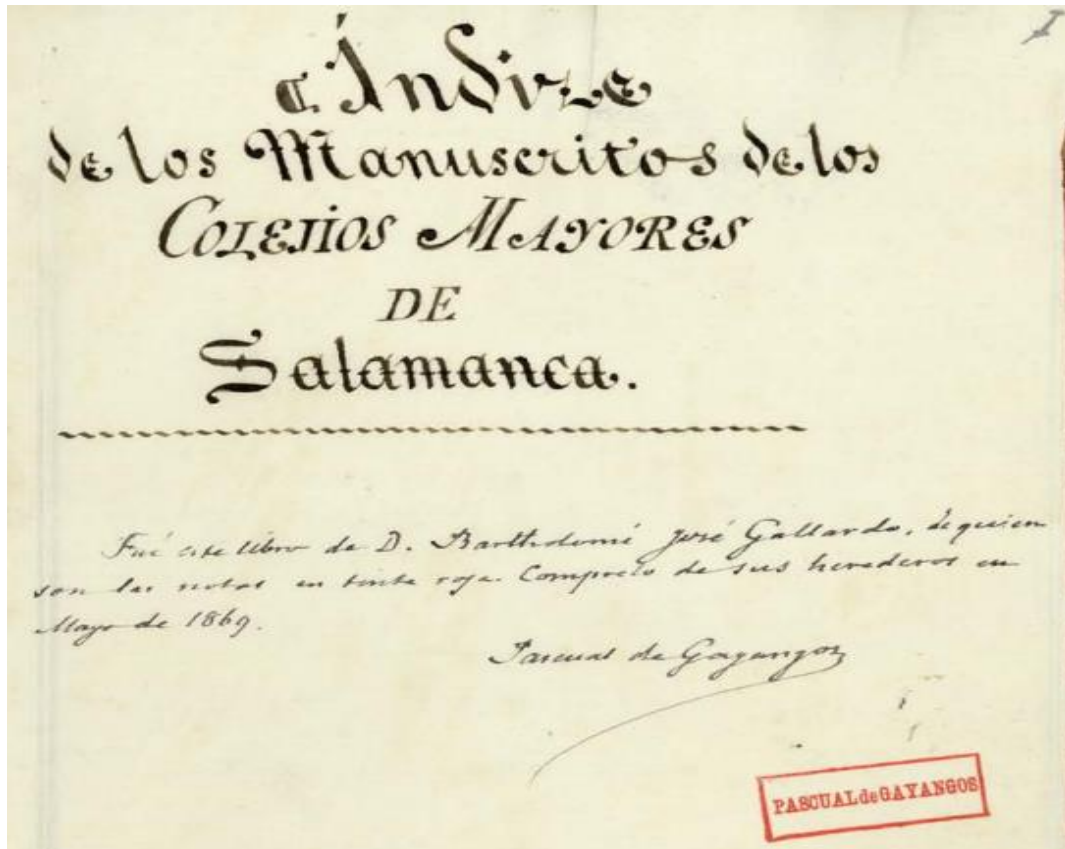 I
Índize
de los Manuscritos de los
COLEJIOS MAYORES
DE
Salamanca.
Fué este libro de D. Bartholomé José Gallardo, de quien
son las notas en tinta roja. Comprelo de sus herederos en
Mayo de 1869.
Pascual de Gayangos
PASCUAL de GAYANGOS